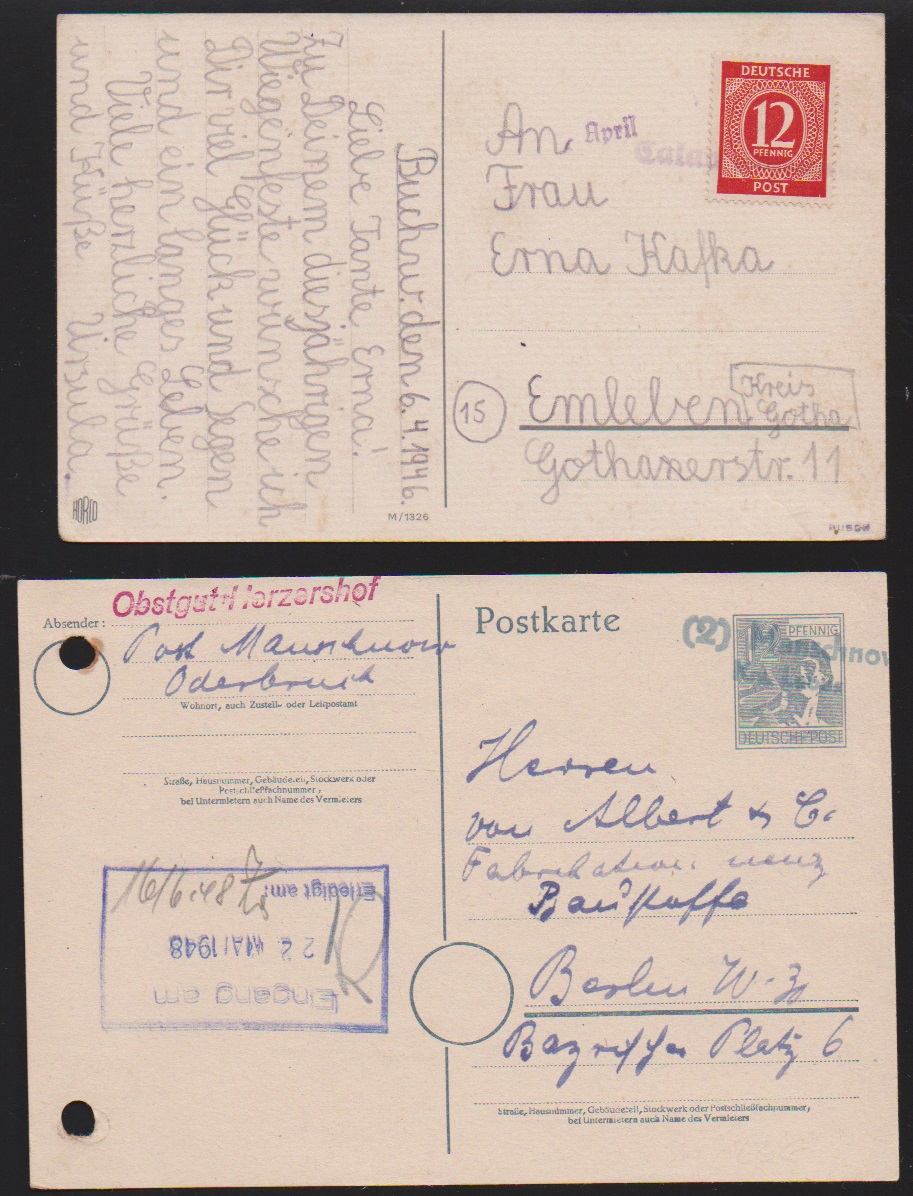 Buchw. den 6.4.1946.
Liebe Tante Erna!
Zu Deinem diesjährigen
Wiegenfeste wünsche ich
Dir viel Glück und Segen
und ein langes Leben.
Viele herzliche Grüße
und Küße Ursula.
HORCO
M/1326
DEUTSCHE
12
PFENNIG
POST
April
An
Frau
Erna Kafka
15
Emleben
Kreis
Gotha
Gothaerstr. 11
Obstgut Herzershof
Absender:
Post Manschnow
Oderbruch
Wohnort, auch Zustell- oder Leitpostamt
Straße, Hausnummer, Gebäudeteil, Stockwerk oder
Postschließfachnummer;
bei Untermietern auch Name des Vermieters
Postkarte
(2) Manschnow
12 PFENNIG
DEUTSCHE POST
Herren
von Albert & C.
Baustoffe
Berlin W. 30
Bayrischer Platz 6
Straße, Hausnummer, Gebäudeteil, Stockwerk oder Postschließfachnummer;
bei Untermietern auch Name des Vermieters
16/6.48
Eingang am
22. MAI 1948
Erledigt am: